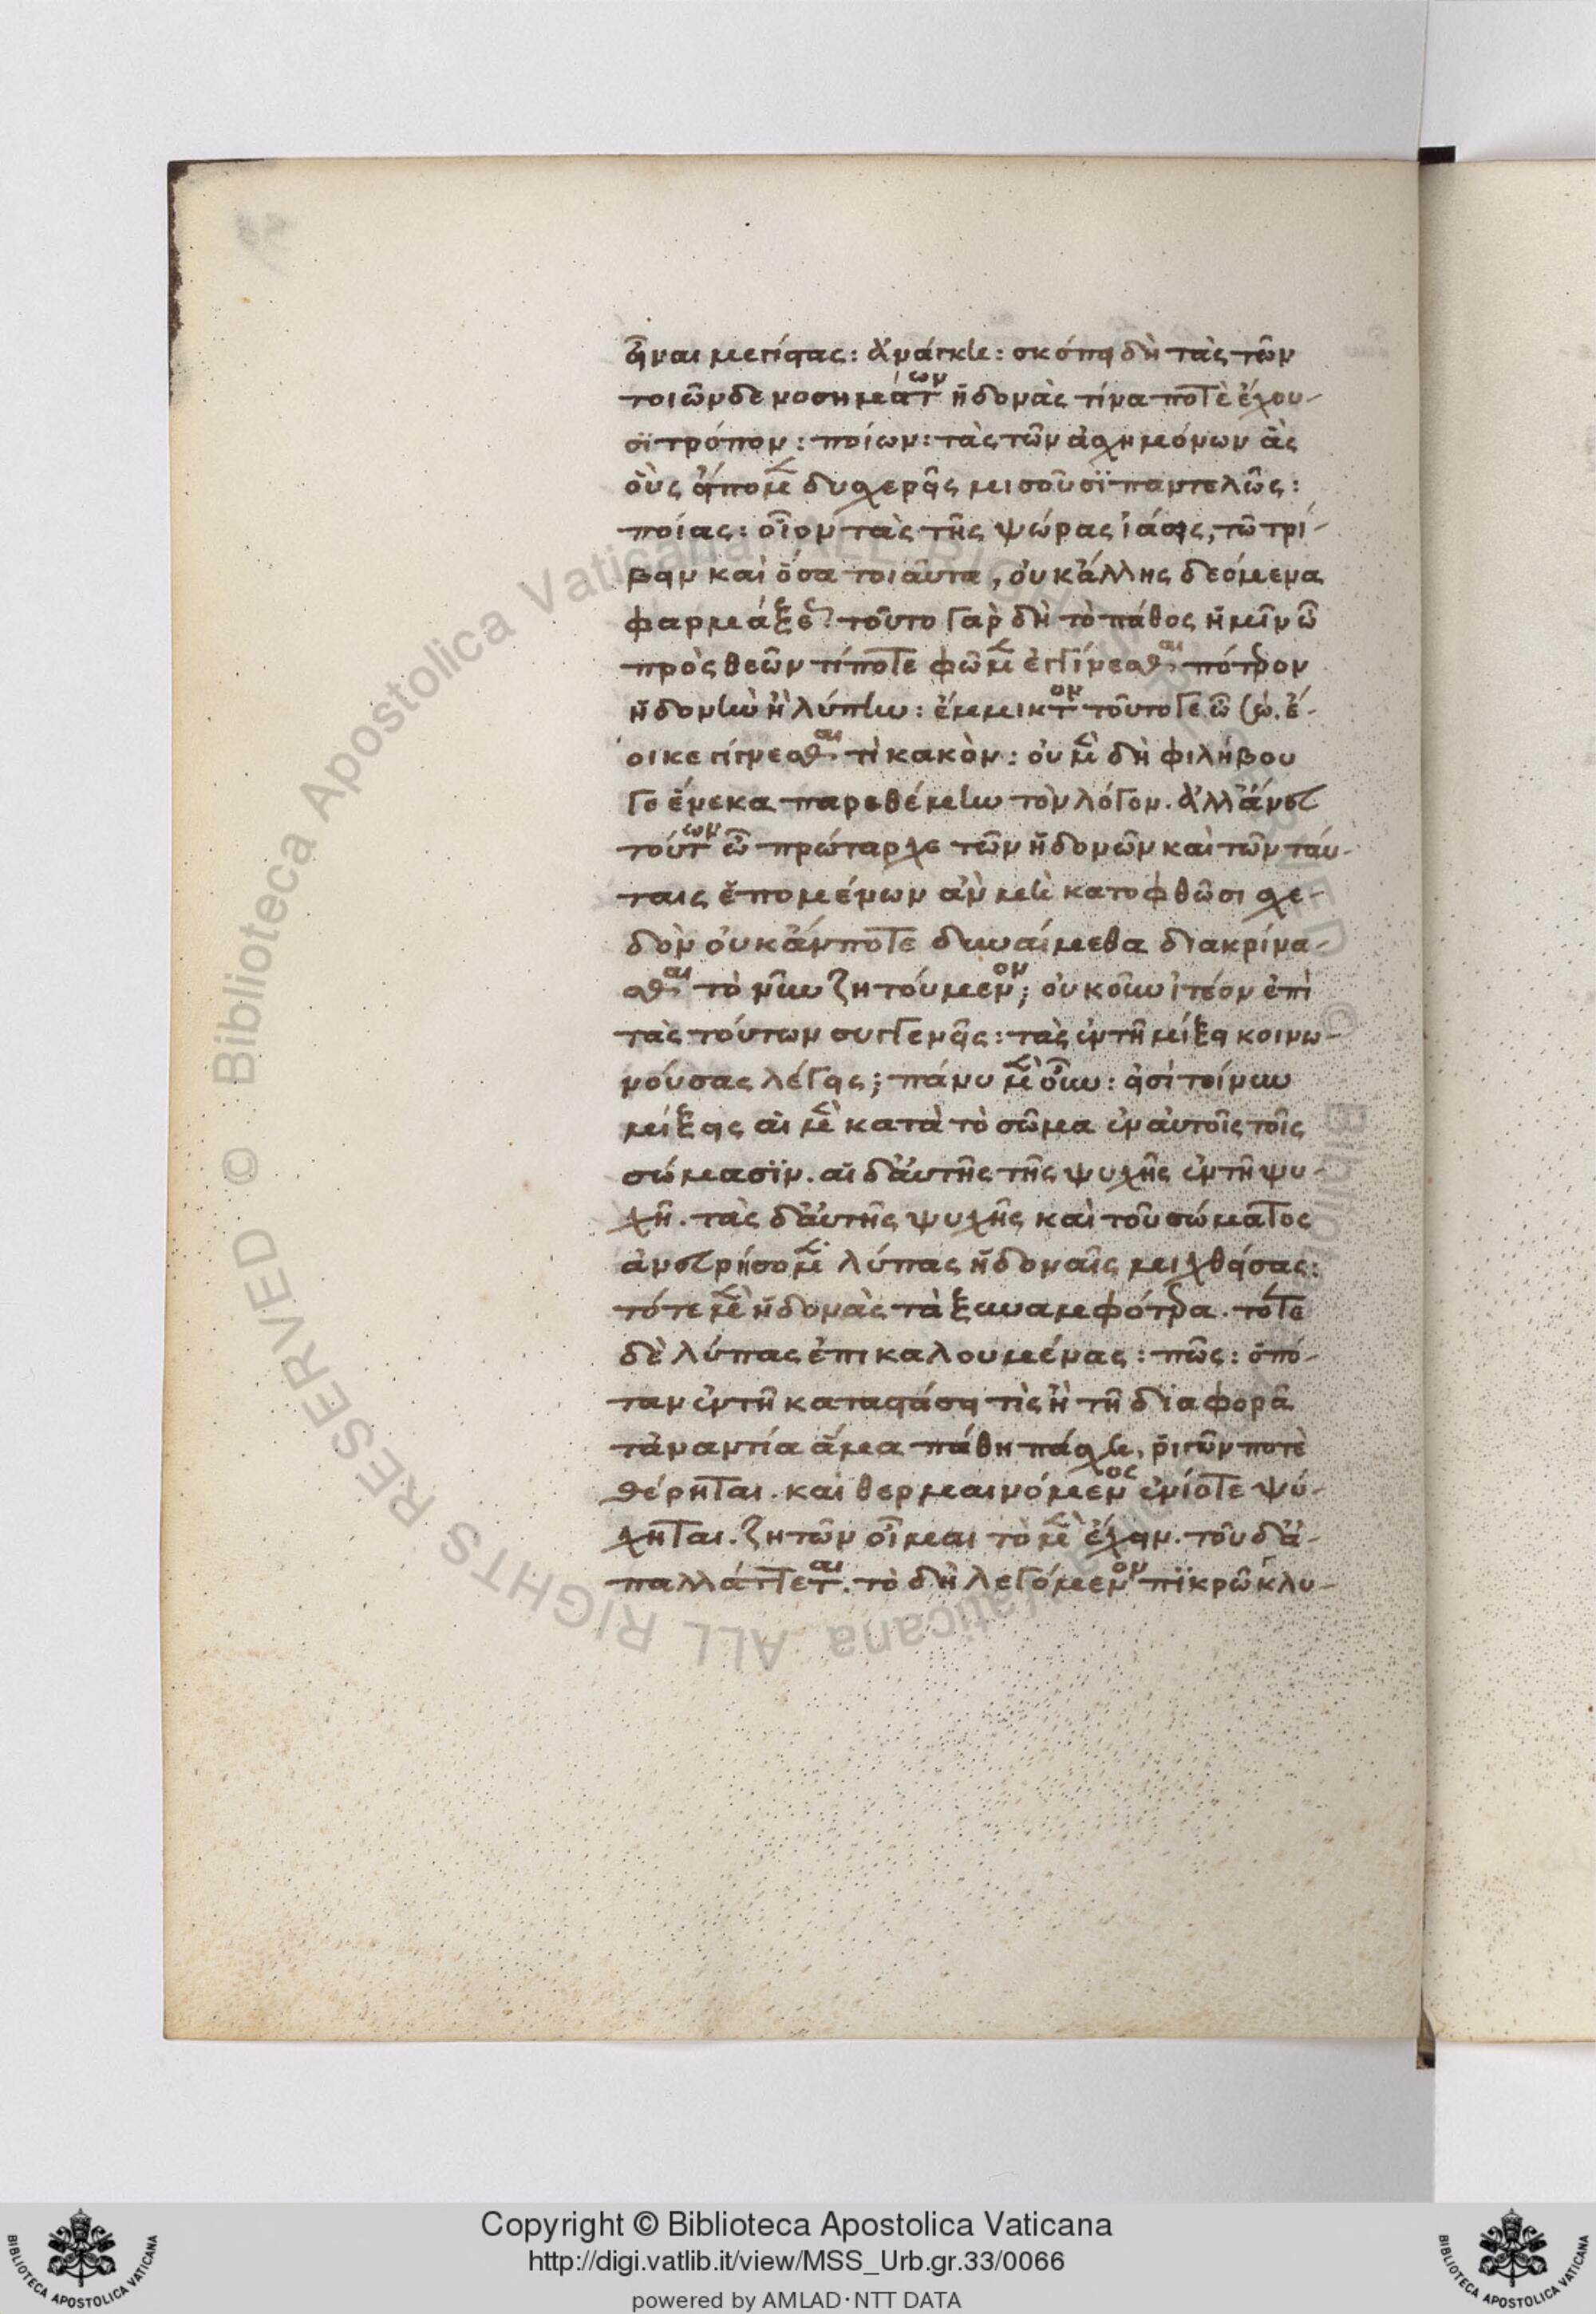 εἶναι μεγίστας: ἀνάγκη: σκόπει δὴ τὰς τῶν
τοιῶνδε νοσημάτων ἡδονὰς τίνα ποτὲ ἔχου-
σϊ τρόπον: ποίων: τὰς τῶν ἀσχημόνων ἃς
οὓς εἴπομεν δυσχερεῖς μισοῦσϊ παντελῶς:
ποίας: οἷον τὰς τῆς ψώρας ἰάσεις, τῶ τρί-
βειν καὶ ὅσα τοιαῦτα, οὐκ ἄλλης δεόμενα
φαρμάξεως τοῦτο γὰρ δὴ τὸ πάθος ἡμῖν ὦ
πρὸς θεῶν τί ποτε φῶμεν ἐγγίνεσθαι πότερον
ἡδονὴν ἢ λύπην: ἔμμικτον τοῦτο γε ὦ σώ. ἔ-
οικε γίγνεσθαι τὶ κακὸν: οὐ μὲν δὴ φιλήβου
γε ἕνεκα παρεθέμην τὸν λόγον. ἀλλ' ἄνευ
τούτων ὦ πρώταρχε τῶν ἡδονῶν καὶ τῶν ταύ-
ταις ἑπομένων ἂν μὴ κατοφθῶσι σχε-
δὸν οὐκ ἄν ποτε δυναίμεθα διακρίνα-
σθαι τὸ νῦν ζητούμενον; οὐκοῦν ἰτέον ἐπὶ
τὰς τούτων συγγενεῖς: τὰς ἐν τῆ μίξει κοινω-
νούσας λέγεις; πάνυ μὲν οὖν: εἰσὶ τοίνυν
μίξεις αἱ μὲν κατὰ τὸ σῶμα ἐν αὐτοῖς τοῖς
σώμασϊν. αἱ δ' αὐτῆς τῆς ψυχῆς ἐν τῆ ψυ-
χῆ. τὰς δ' αὐτῆς ψυχῆς καὶ τοῦ σώματος
ἀνευρήσομεν λύπας ἡδοναῖς μειχθείσας:
τότε μὲν ἡδονὰς τὰ ξυναμφότερα. τότε
δὲ λύπας ἐπικαλουμένας: πῶς: ὁπό-
ταν ἐν τῆ καταστάσει τὶς ἢ τῆ διαφορᾶ
τἀναντία ἅμα πάθη πάσχη. ῥιγῶν ποτὲ
θέρηται. καὶ θερμαινόμενος ἐνίοτε ψύ-
χηται. ζητῶν οἶμαι τὸ μὲν ἔχειν. τοῦ δ' ἀ-
παλλάττεται. τὸ δὴ λεγόμενον πϊκρῶ γλυ-
Copyright © Biblioteca Apostolica Vaticana
http://digi.vatlib.it/view/MSS_Urb.gr.33/0066
powered by AMLAD·NTT DATA